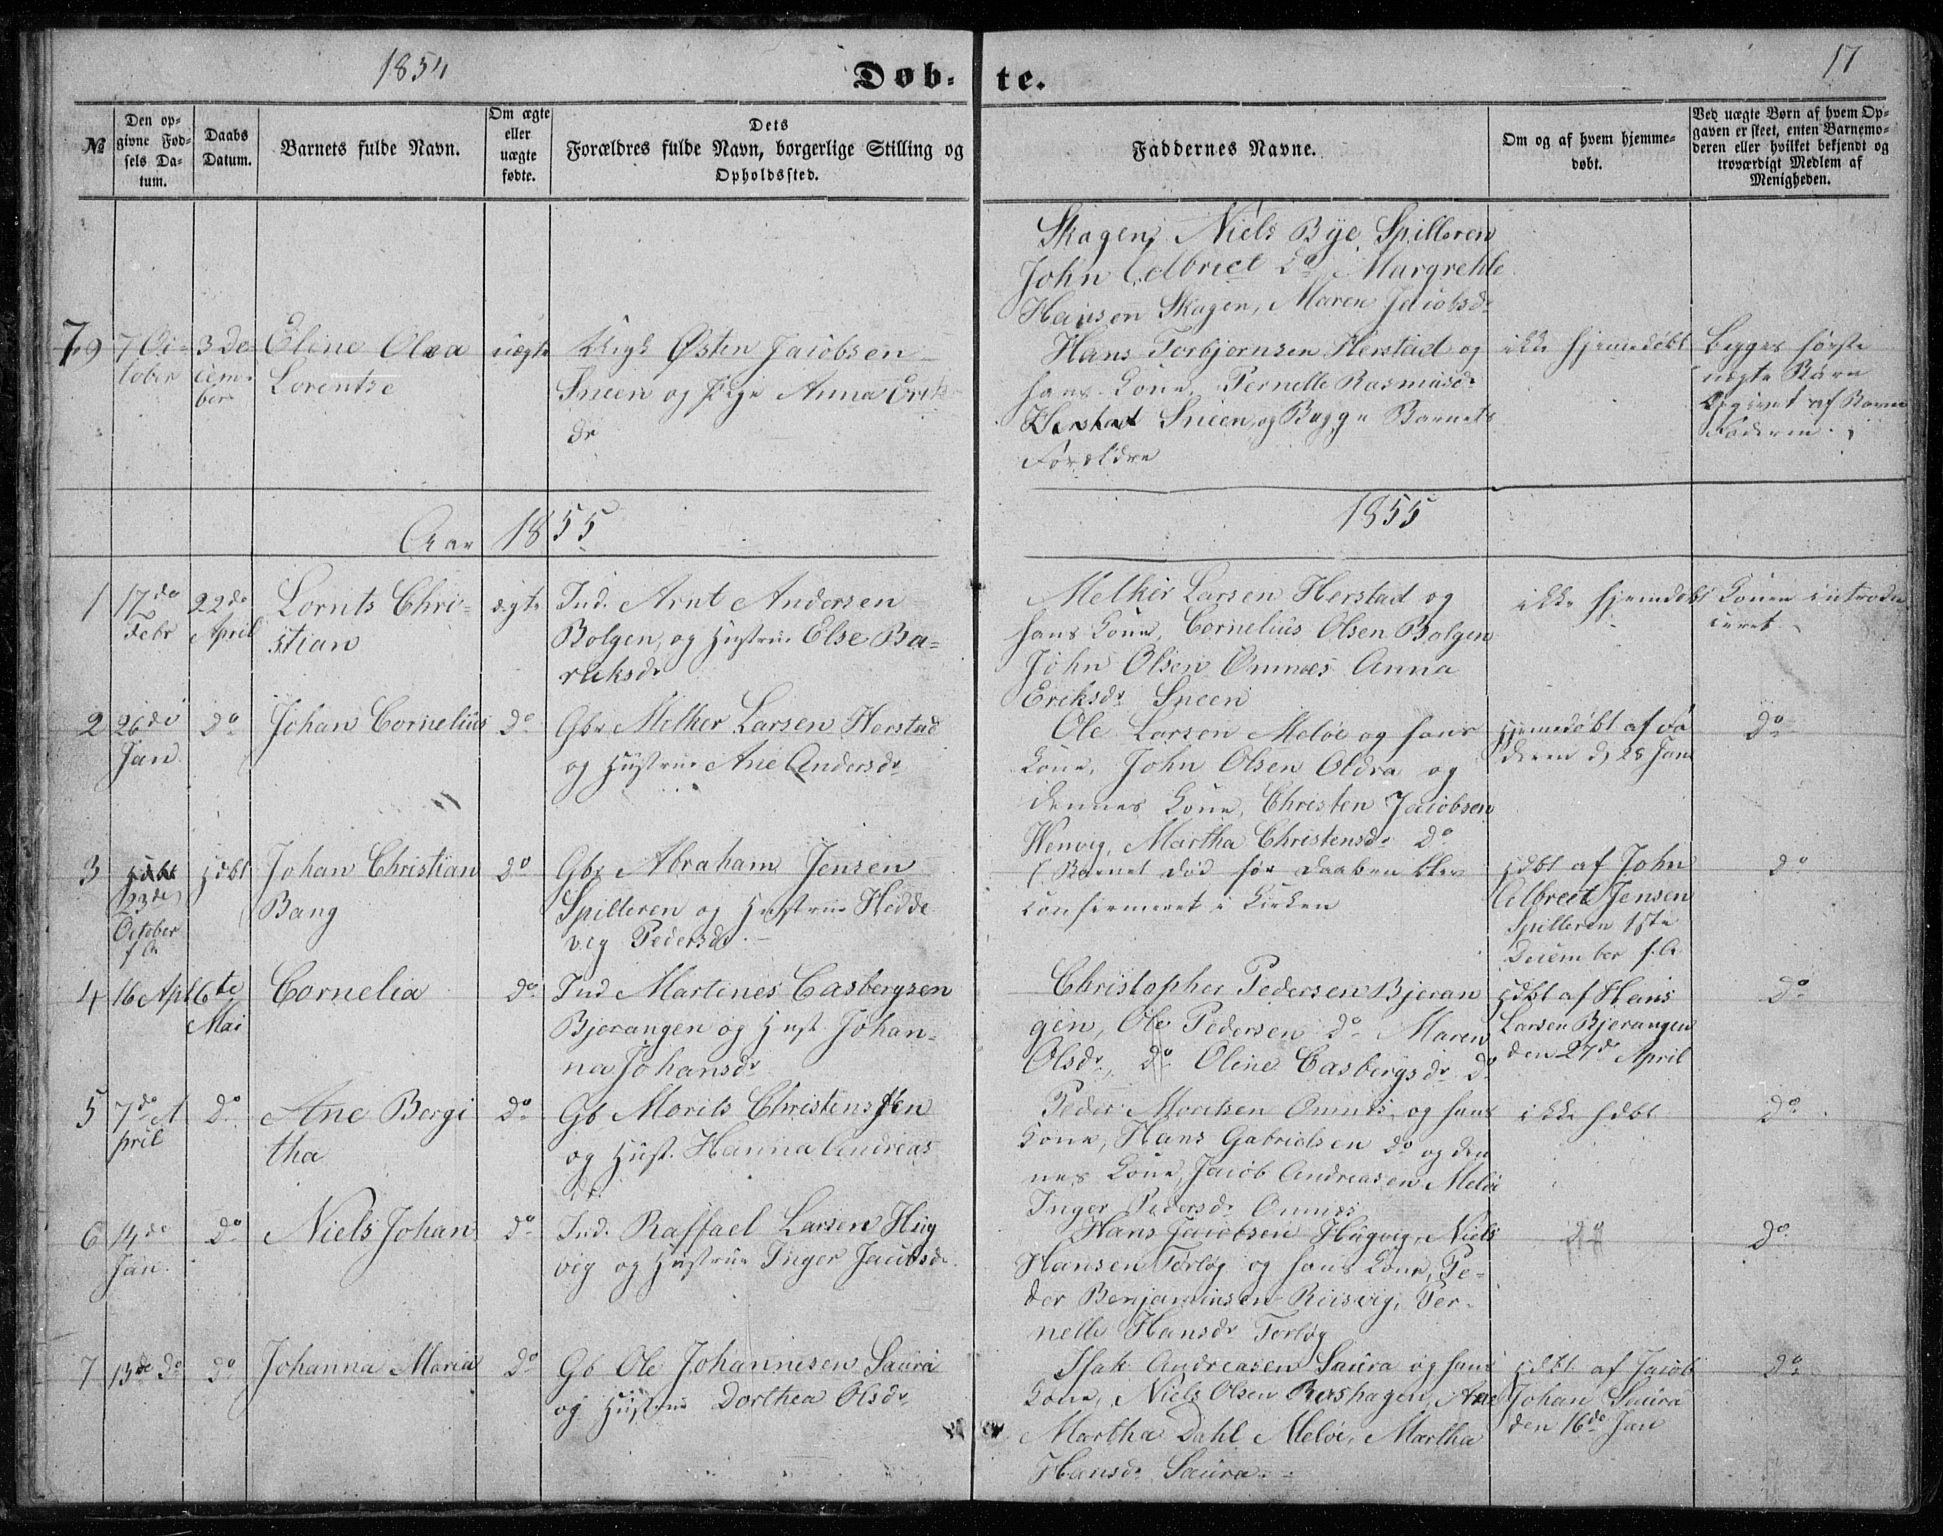 1854
Døb-te.
17
№
Den opgivne Fødsels Datum.
Daabs Datum.
Barnets fulde Navn.
Om ægte eller uægte fødte.
Dets Forældres fulde Navn, borgerlige Stilling og Opholdssted.
Faddernes Navne.
Om og af hvem hjemmedøbt.
Ved uægte Børn af hvem Opgaven er skeet, enten Barnemoderen eller hvilket bekjendt og troværdigt Medlem af Menigheden.
Skagen, Niels Bye Spilleren
John Albrict do Margrehte
Hansen Skagen, Maren Jacobsdr
79
7 Oc-
tober
3 De-
cem-
ber
Eline Olea
Lorentse
uægte
Ungk Østen Jacobsen
Sneen og Pige Anna Eriks
dr
Hans Torbjørnsen Herstad og
hans Kone, Pernelle Rasmusdr
Herstad Sneen, og Begge Barnets
Forældre
ikke hjemedøbt
Begges første
uægte Barn
Opgivet af Barne
Faderen.
Aar 1855
1855
1
17de
Febr
22de
April
Lornts Chri-
stian
ægte
Ind. Arnt Andersen
Bolgen, og Hustrue Else Ba-
raksdr
Melker Larsen Herstad og
hans Kone, Cornelius Olsen Bolgen
John Olsen Ømnæs Anna
Eriksdr Sneen
ikke hjemdøbt
Konen introdu
ceret.
2
26de
Jan
do
Johan Cornelius
do
Gbr Melker Larsen Herstad
og Hustrue Ane Andersdr
Ole Larsen Meløe og hans
Kone, John Olsen Oldra og
dennes Kone, Christen Jacobsen
Wenvig, Martha Christensdr do
Hjemedøbt af Fa
deren d 28 Jan
do
3
23de
October
f. A
hdbt
Johan Christian
Bang
do
Gbr Abraham Jensen
Spilleren og Hustrue Hedde
vig Pedersdr.
(Barnet død før Daaben blev
confirmeret i Kirken
hdbt af John
Albrect Jensen
Spilleren 1ste
December f. A
do
4
16 Apl
6te
Mai
Cornelia
do
Ind Martines Casbergsen
Bjerangen og Hust Johan-
na Johansdr
Christopher Pedersen Bjeran
gen, Ole Pedersen do Maren
Olsdr, do Oline Casbergsdr do
hdbt af Hans
Larsen Bjerangen
den 27de April
do
5
7de A
pril
do
Ane Bergi
tha
do
Gb Morits Christensen
og Hust. Hanna Andreas
dr
Peder Moritsen Ømnes, og hans
Kone, Hans Gabrielsen do og den
nes Kone, Jacob Andreasen Meløe
Inger Pedersdr Ømnes
ikke hdbt
do
6
14de
Jan.
do
Niels Johan
do
Ind. Raffael Larsen Hug
vig og Hustrue Inger Jacobsdr
Hans Jacobsen Hugvig, Niels
Hansen Terløg og hans Kone, Pe-
der Benjaminsen Reisvig, Per-
nelle Hansdr Terløg
do
do
7
13de do
do
Johanna Maria
do
Gb Ole Johannesen Saura
og Hustrue Dorthea Olsdr
Isak Andreasen Saura og hans
Kone, Niels Olsen Reshagen, Ane
Martha Dahl Meløe, Martha
Hansdr Saura.
hdbt af Jacob
Johan Saura
den 16de Jan
do